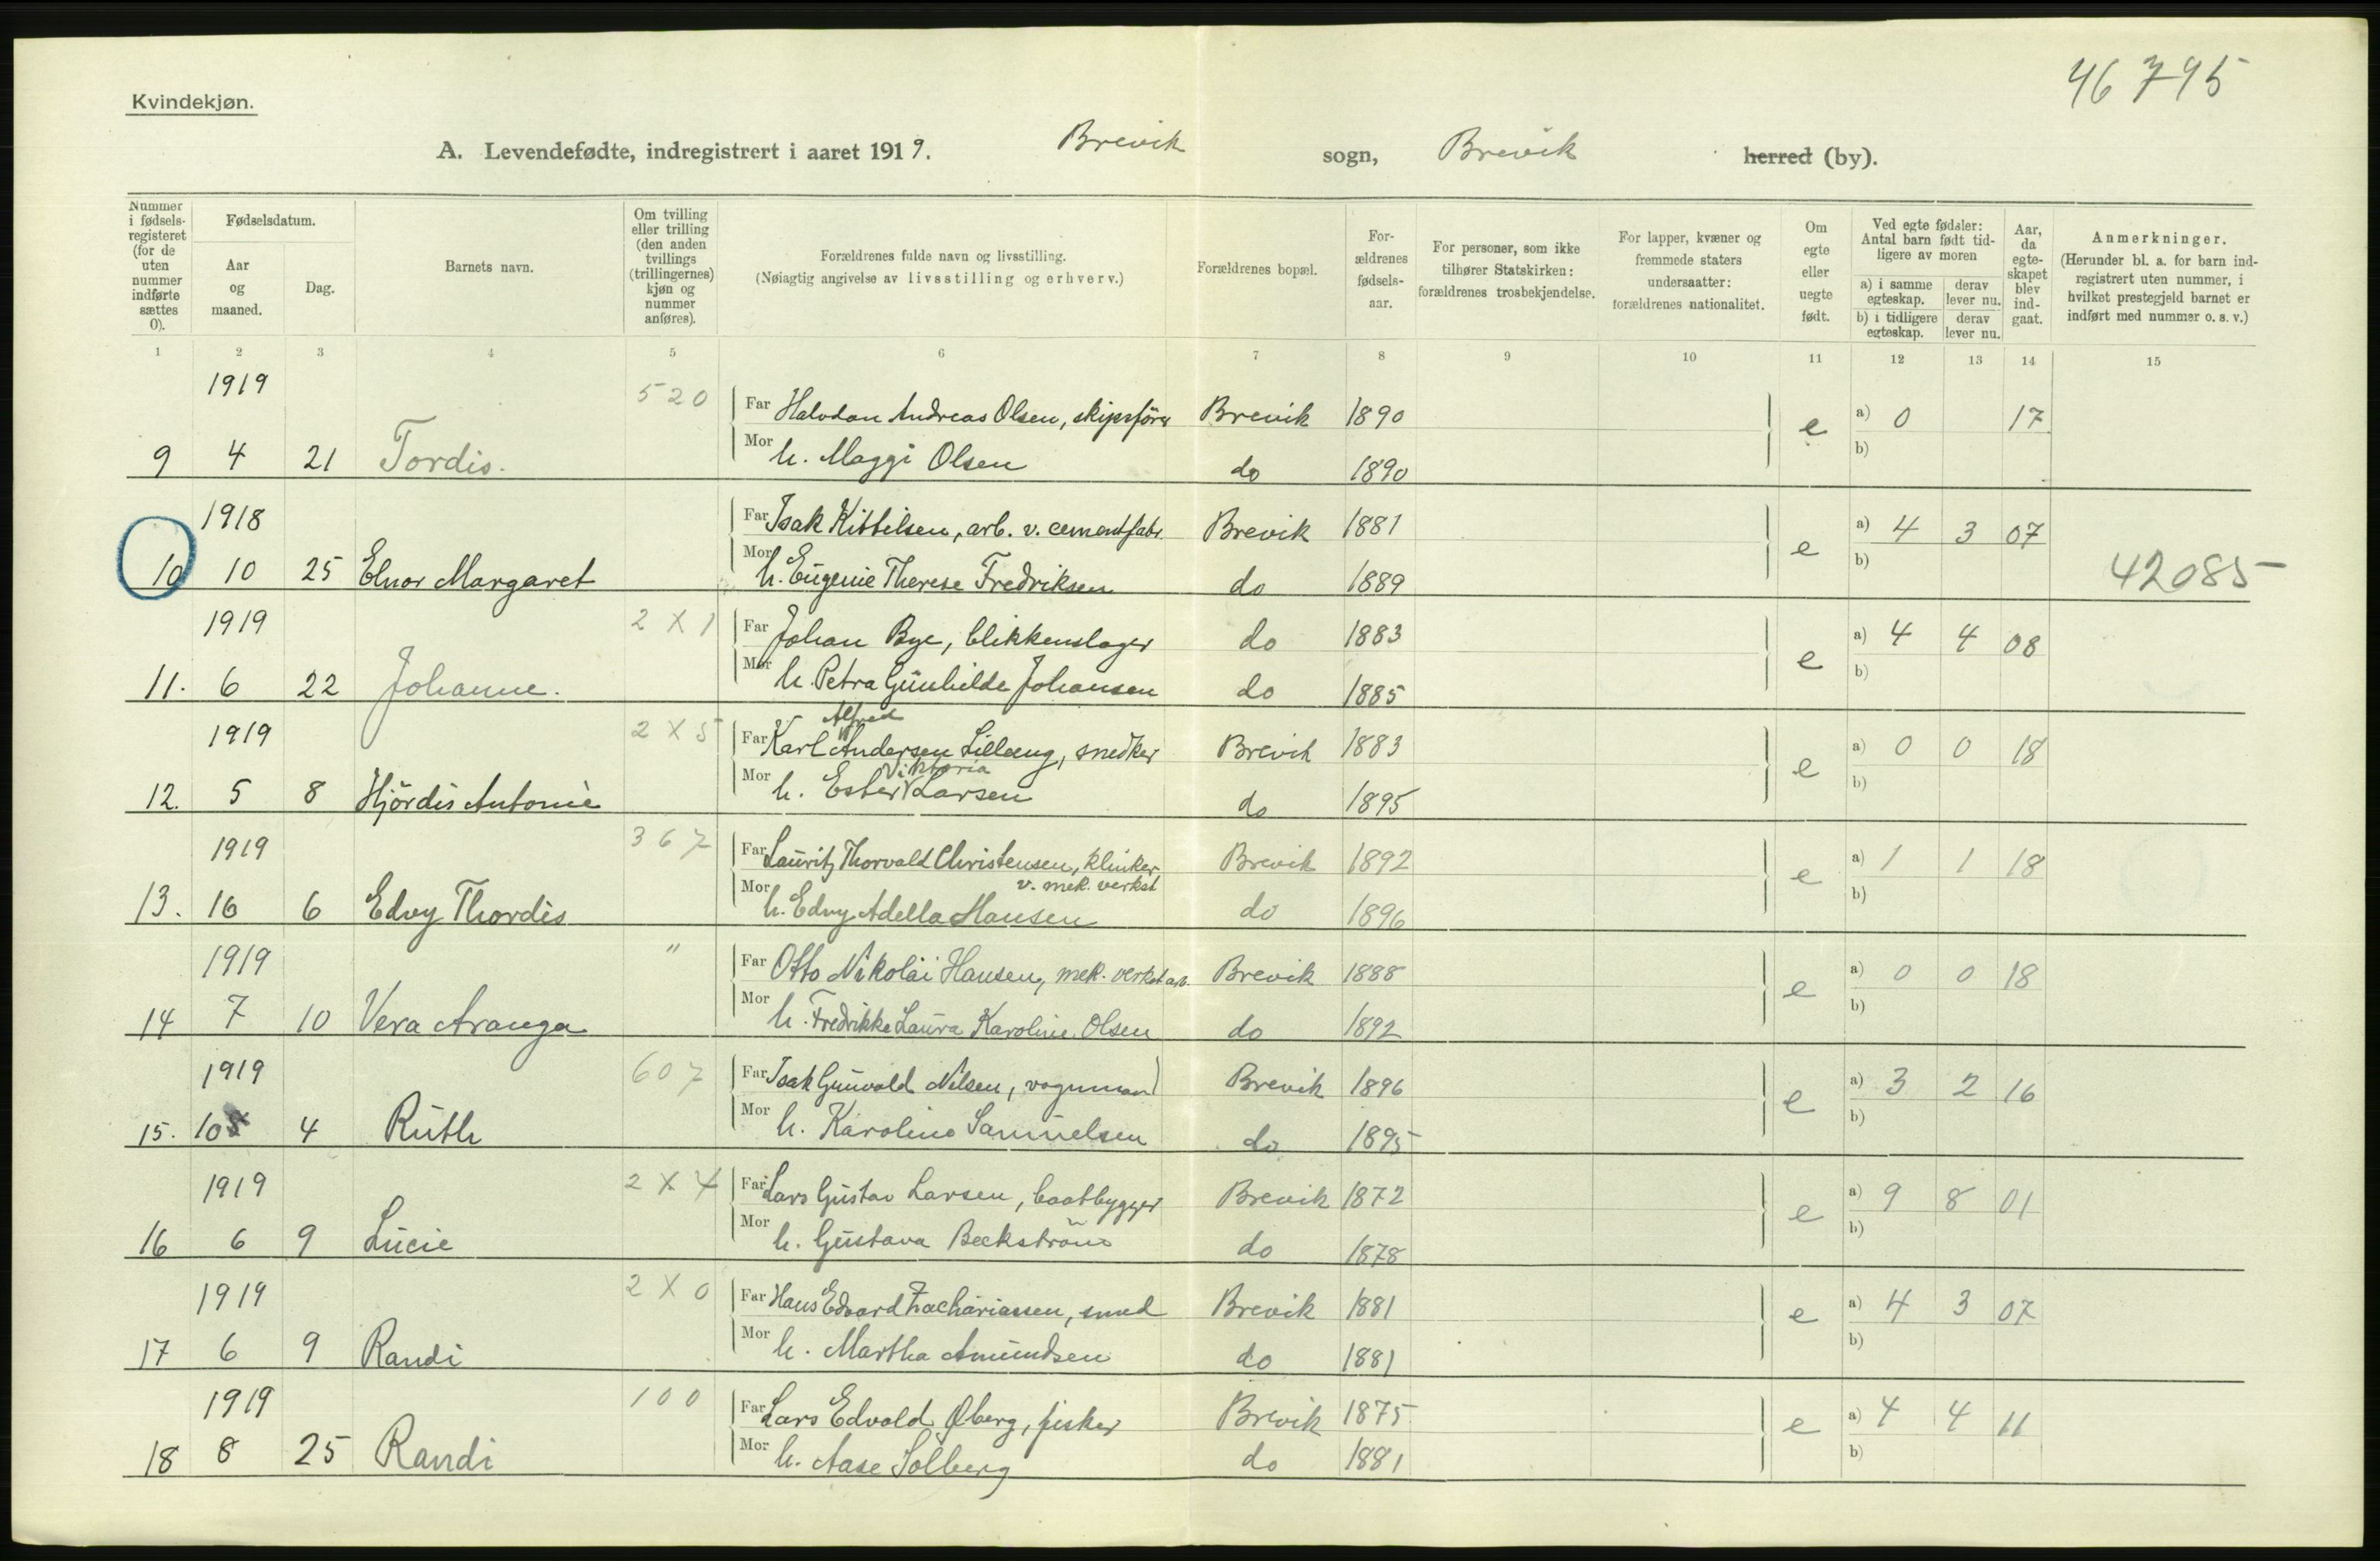 46 795
Kvindekjøn.
A. Levendefødte, indregistrert i aaret 1919. Brevik sogn, Brevik herred (by).
Nummer i fødsels-registeret (for de uten nummer indførte sættes 0).
Fødselsdatum.
Aar og maaned.
Dag.
Barnets navn.
Om tvilling eller trilling (den anden tvillings (trillingernes) kjøn og nummer anføres).
Forældrenes fulde navn og livsstilling.
(Nøiagtig angivelse av livsstilling og erhverv.)
Forældrenes bopæl.
For-ældrenes fødsels-aar.
For personer, som ikke tilhører Statskirken: forældrenes trosbekjendelse.
For lapper, kvæner og fremmede staters undersaatter: forældrenes nationalitet.
Om egte eller uegte født.
Ved egte fødsler: Antal barn født tid-ligere av moren
a) i samme egteskap. derav lever nu.
b) i tidligere egteskap. derav lever nu.
Aar, da egte-skapet blev ind-gaat.
Anmerkninger.
(Herunder bl. a. for barn ind-registrert uten nummer, i hvilket prestegjeld barnet er indført med nummer o. s. v.)
1 2 3 4 5 6 7 8 9 10 11 12 13 14 15
1919 520 Far Halvdan Andreas Olsen, skipsfører Brevik 1890 e a) 0 17
9 4 21 Tordis. Mor h. Maggi Olsen do 1890 b)
1918 Far Isak Kittilsen, arb. v. cementfabr. Brevik 1881 e a) 4 3 07
10 10 25 Elnor Margaret Mor h. Eugenie Therese Fredriksen do 1889 b) 42085
1919 2 X 1 Far Johan Bye, blikkenslager do 1883 e a) 4 4 08
11. 6 22 Johanne. Mor h. Petra Gunhilde Johansen do 1885 b)
Alfred
1919 2 X 5 Far Karl Andersen Lilleeng, snedker Brevik 1883 e a) 0 0 18
Viktoria
12. 5 8 Hjördis Antonie Mor h. Ester Larsen do 1895 b)
1919 367 Far Lauritz Thorvald Christensen, klinker, Brevik 1892 e a) 1 1 18
v. mek. verkst
13. 16 6 Edvy Thordis Mor h. Edvy Adella Hansen do 1896 b)
1919 " Far Otto Nikolai Hansen, mek. verkst arb. Brevik 1888 e a) 0 0 18
14 7 10 Vera Aranga Mor h. Fredrikke Laura Karoline Olsen do 1892 b)
1919 607 Far Isak Gunvald Nilsen, vognman Brevik 1896 e a) 3 2 16
15. 10 4 Ruth Mor h. Karoline Samuelsen do 1895 b)
1919 2 X 4 Far Lars Gustav Larsen, baatbygger Brevik 1872 e a) 9 8 01
16 6 9 Lucie Mor h. Gustava Beckström do 1878 b)
1919 2 X 0 Far Hans Edvard Zachariassen, smed Brevik 1881 e a) 4 3 07
17 6 9 Randi Mor h. Martha Amundsen do 1881 b)
1919 100 Far Lars Edvald Øberg, fisker Brevik 1875 e a) 4 4 11
18 8 25 Randi Mor h. Aase Solberg do 1881 b)